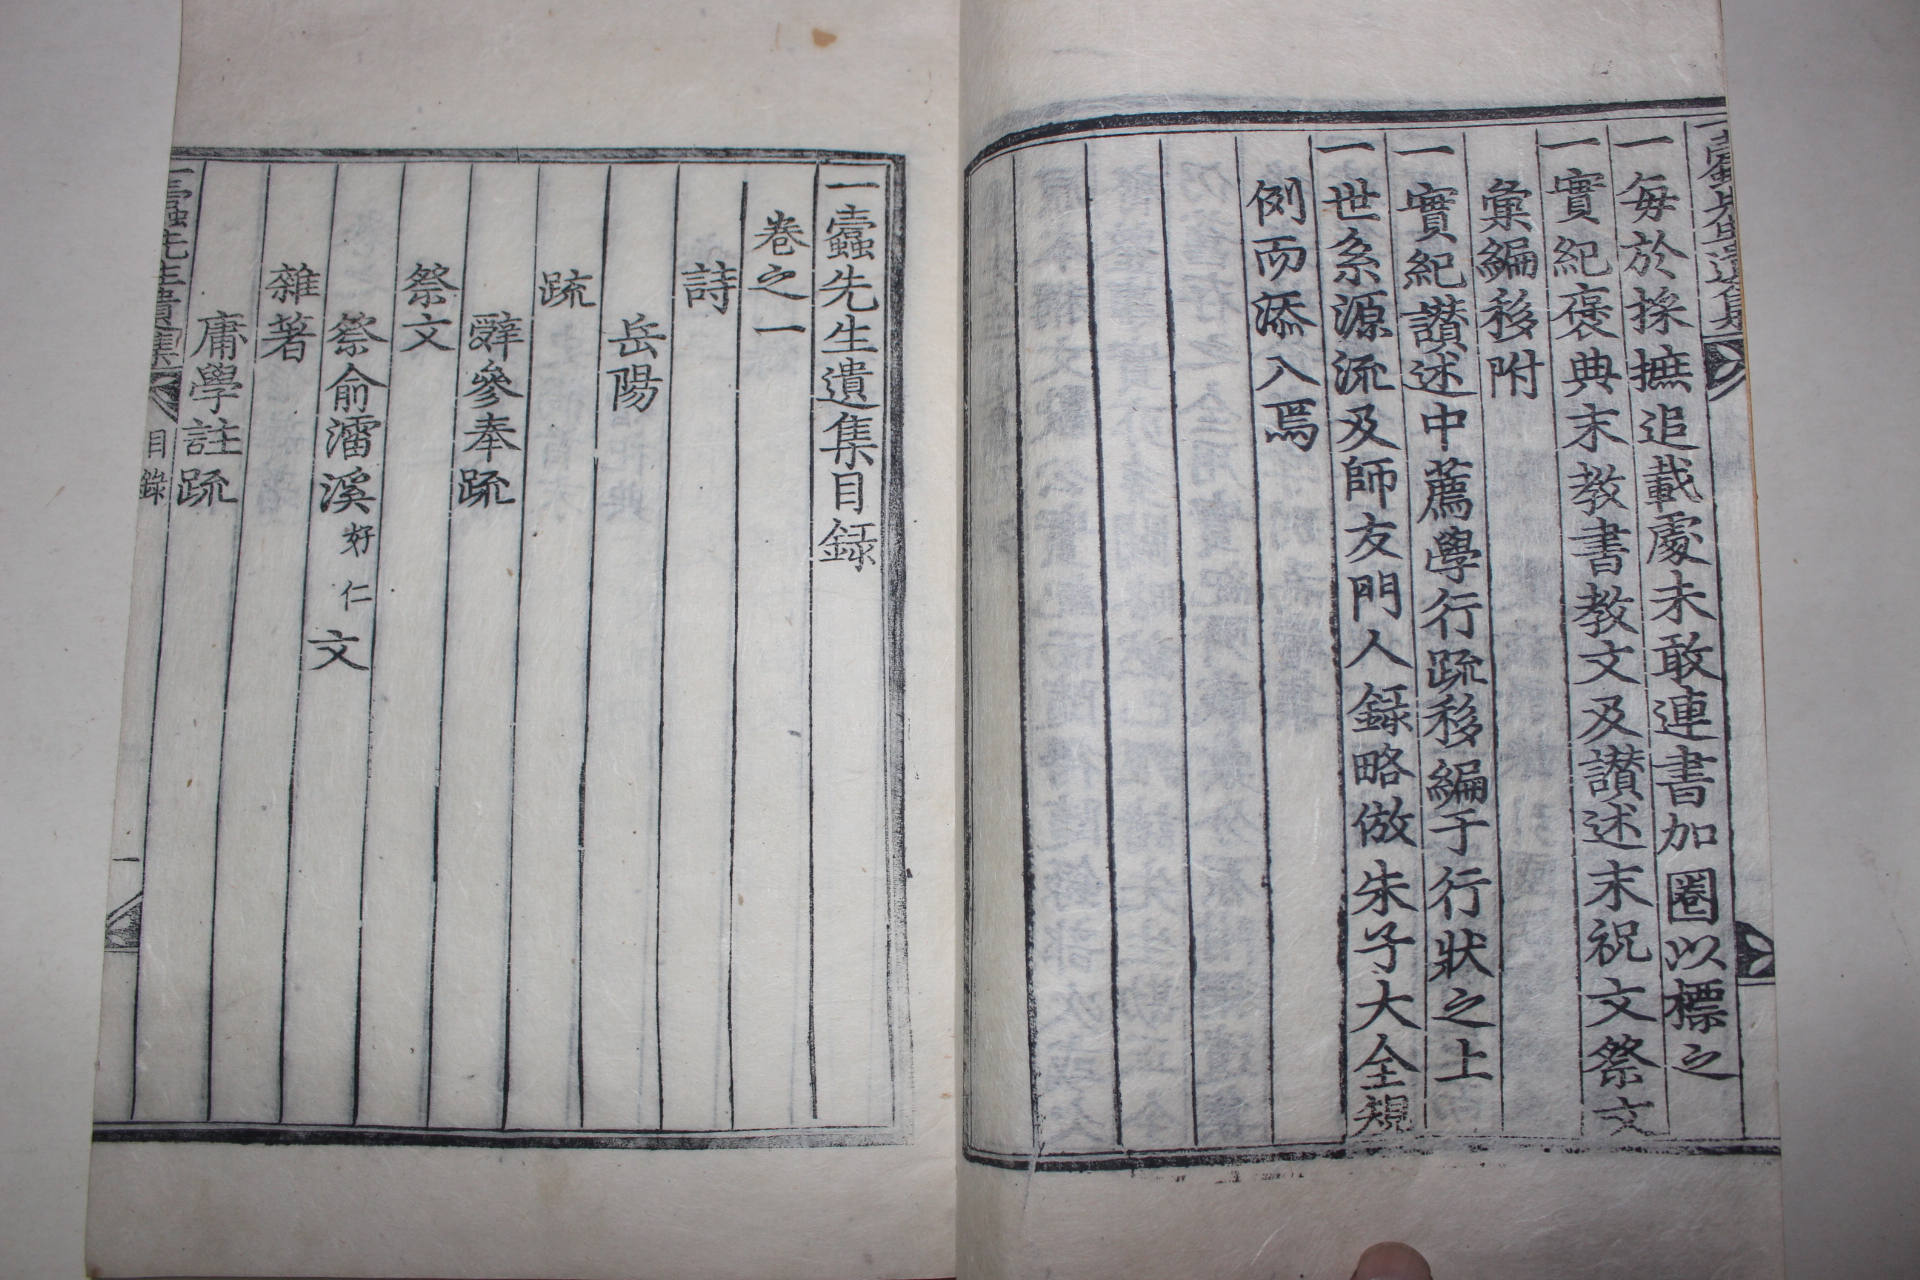 一蠹先生遺集
一每於採摭追載處未敢連書加圈以標之
一實紀褒典末教書教文及讚述末祝文祭文
彙編移附
一實紀讚述中薦學行疏移編于行狀之上
一世系源流及師友門人錄略倣朱子大全規
例而添入焉
一蠹先生遺集目録
卷之一
詩
岳陽
疏
辭參奉疏
祭文
祭俞㵢溪好仁文
雜著
庸學註疏
一蠹先生遺集
目錄
一